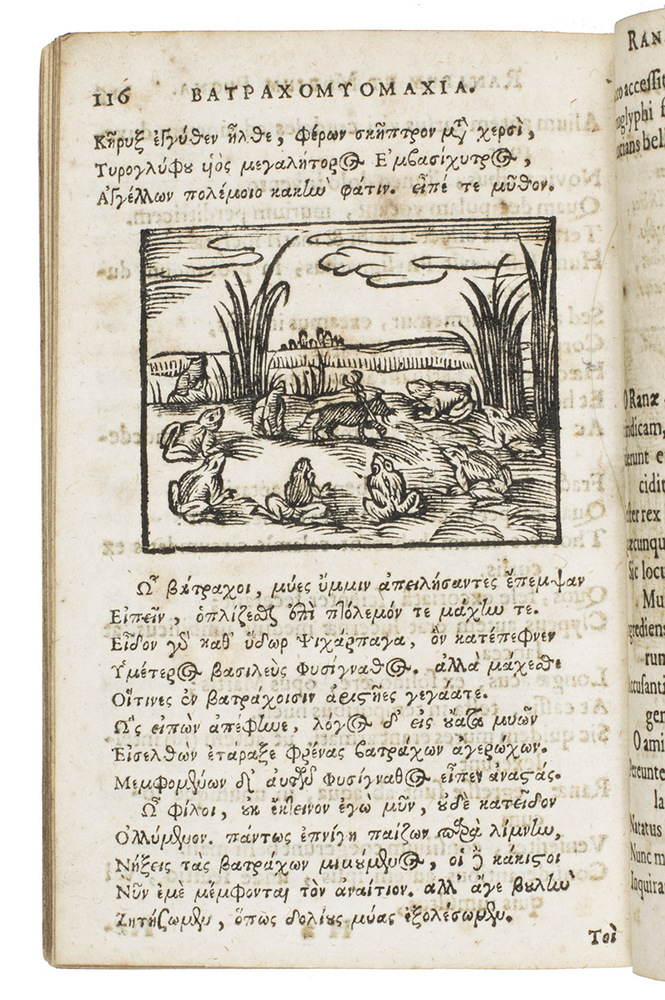 116 ΒΑΤΡΑΧΟΜΥΟΜΑΧΙΑ.
Κῆρυξ ἐγγύθεν ἦλθε, φέρων σκῆπτρον μετὰ χερσὶ,
Τυρογλύφου υἱὸς μεγαλήτορος Ἐμβασίχυτρος,
Ἀγγέλλων πολέμοιο κακὴν φάτιν. εἶπέ τε μῦθον.
Ὦ βάτραχοι, μύες ὔμμιν ἀπειλήσαντες ἔπεμψαν
Εἰπεῖν, ὁπλίζεσθαι ἐπὶ πτόλεμόν τε μάχην τε.
Εἶδον γὰρ καθ' ὕδωρ Ψιχάρπαγα, ὃν κατέπεφνεν
Ὑμέτερος βασιλεὺς Φυσίγναθος, ἀλλὰ μάχεσθε
Οἵτινες ἐν βατράχοισιν ἀριστῆες γεγάατε.
Ὣς εἰπὼν ἀπέφηνε, λόγος δ' εἰς οὔατα μυῶν
Εἰσελθὼν ἐτάραξε φρένας βατράχων ἀγερώχων.
Μεμφομένων δὲ αὐτῶν Φυσίγναθος εἶπεν ἀναστάς.
Ὦ φίλοι, οὐκ ἔκτεινον ἐγὼ μῦν, οὐδὲ κατεῖδον
Ὀλλύμενον. πάντως ἐπνίγη παίζων παρὰ λίμνην,
Νήξεις τὰς βατράχων μιμούμενος, οἱ δὲ κάκιστοι
Νῦν ἐμὲ μέμφονται τὸν ἀναίτιον. ἀλλ' ἄγε βουλὴν
Ζητήσωμεν, ὅπως δολίους μύας ἐξολέσωμεν.
Τοὶ
RAN
accessit
O Ranæ
rex
Sic locu
Mu
O ami
Natatus
Nunc m
Inquira